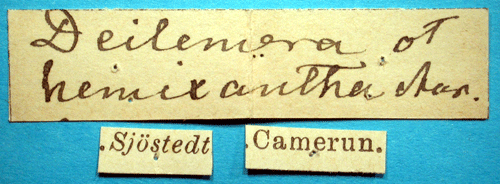 Deilemera
hemixantha Aur.
.Sjöstedt
.Camerun.